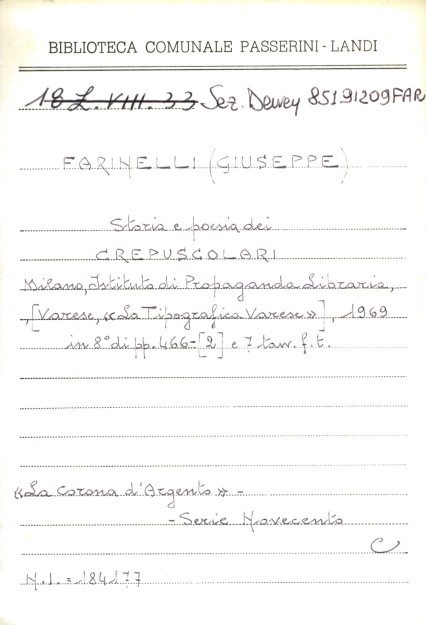 BIBLIOTECA COMUNALE PASSERINI - LANDI
18 L. VIII. 33 Sez. Dewey 85191209FAR
FARINELLI (GIUSEPPE)
Storia e poesia dei
CREPUSCOLARI
Milano, Istituto di Propaganda Libraria,
, [Varese, «La Tipografica Varese»], 1969
in 8° di pp. 466-[2] e 7 tav. f. t.
«La corona d'Argento» -
- Serie Novecento
C
N.I. = 184177